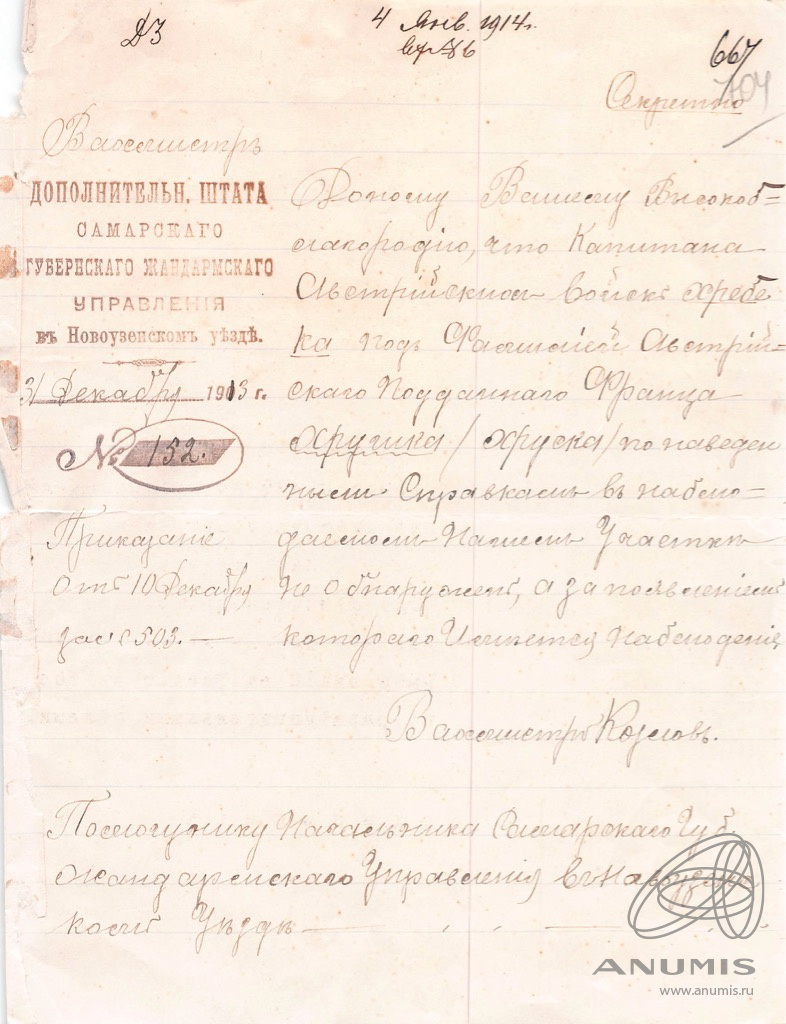 ДЗ
4 Янв. 1914 г.
вх № 6
667
704
Секретно
Вахмистръ
ДОПОЛНИТЕЛЬН. ШТАТА
САМАРСКАГО
ГУБЕРНСКАГО ЖАНДАРМСКАГО
УПРАВЛЕНІЯ
въ Новоузенскомъ уѣздѣ.
31 Декабря 1913 г.
№ 152.
Приказаніе
Отъ 10 Декабря
за № 503. —
Доношу Вашему Высокоб=
лагородію, что Капитана
Австрійскихъ войскъ Хребе
ка подъ Фамиліей Австрій=
скаго Подданнаго Франца
Хрушка / Хруска / по наведен
нымъ Справкамъ въ наблю=
даемомъ Нашемъ Участкѣ
не обнаруженъ, а за появленіемъ
котораго Имѣется наблюденія
Вахмистръ Козловъ.
Помощнику Начальника Самарскаго Губ
Жандармскаго Управленія въ Новоузен
комъ Уѣздѣ —
ANUMIS
www.anumis.ru